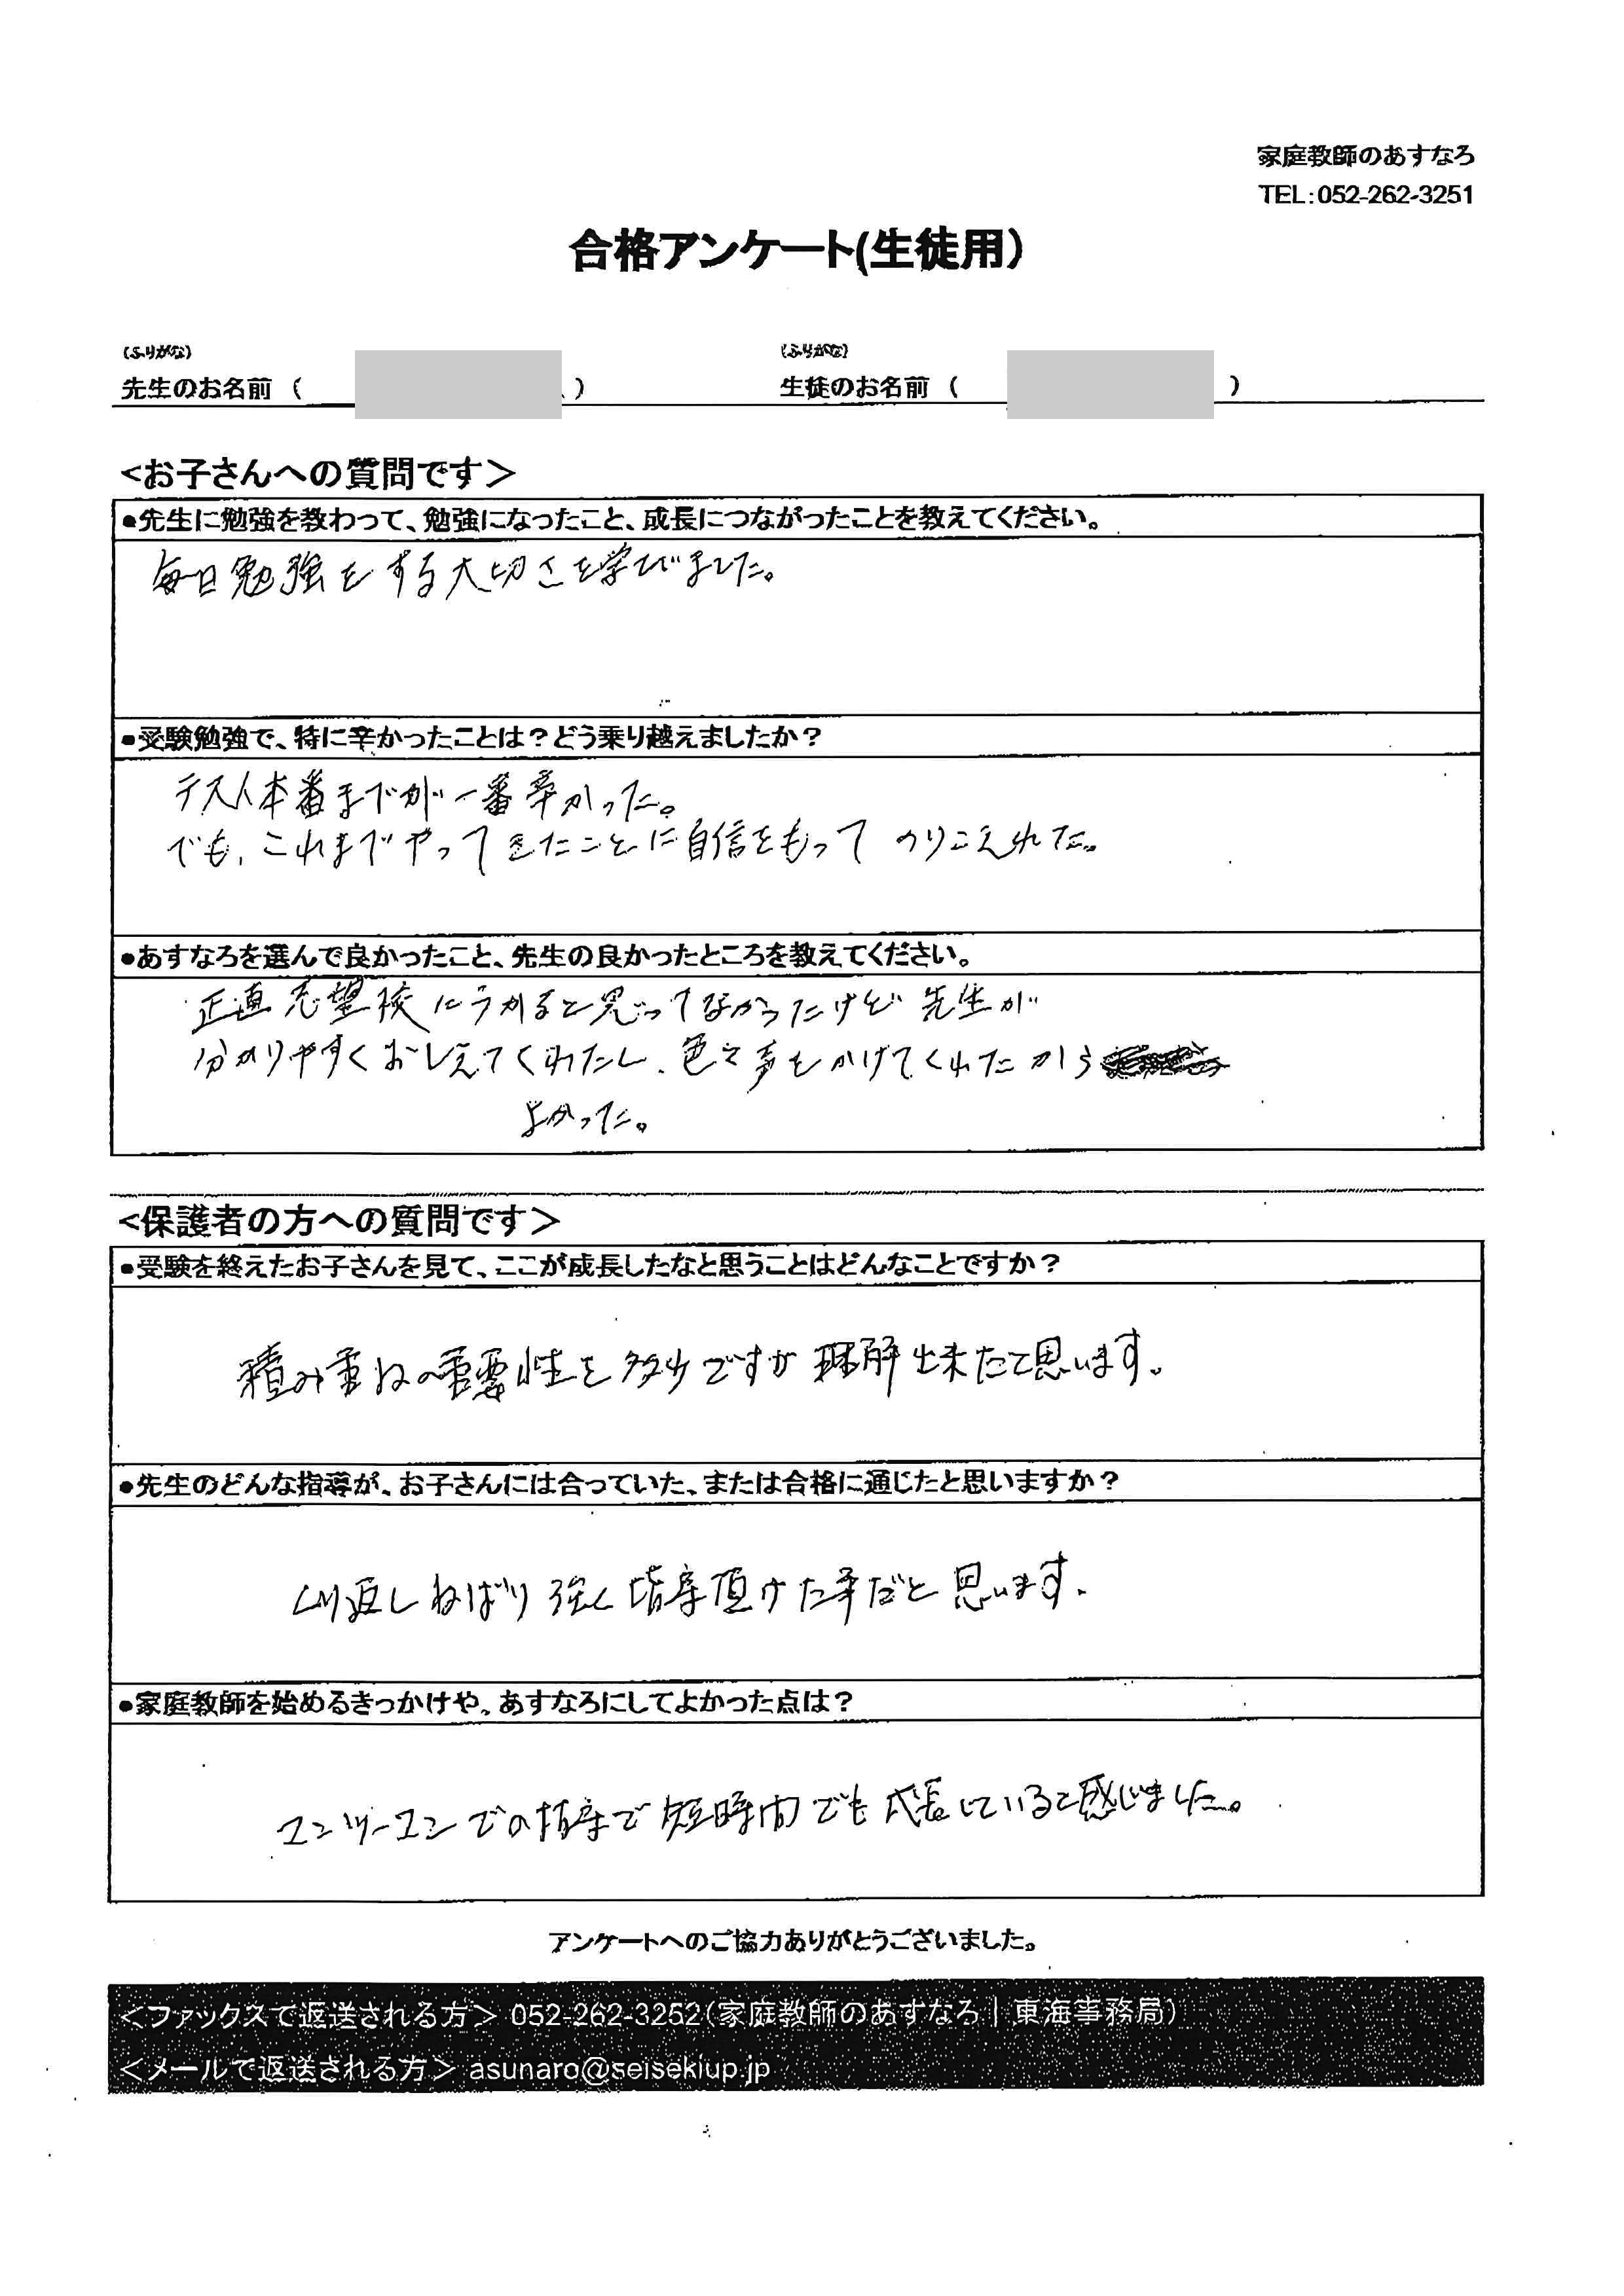 家庭教師のあすなろ
TEL:052-262-3251
合格アンケート(生徒用)
(ふりがな) (ふりがな)
先生のお名前 ( ) 生徒のお名前 ( )
<お子さんへの質問です>
●先生に勉強を教わって、勉強になったこと、成長につながったことを教えてください。
毎日勉強をする大切さを学びました。
●受験勉強で、特に辛かったことは?どう乗り越えましたか?
テスト本番までが一番辛かった。
でも、これまでやってきたことに自信をもってのりこえれた。
●あすなろを選んで良かったこと、先生の良かったところを教えてください。
正直志望校にうかると思ってなかったけど先生が
分かりやすくおしえてくれたし、色々声をかけてくれたから
よかった。
<保護者の方への質問です>
●受験を終えたお子さんを見て、ここが成長したなと思うことはどんなことですか?
積み重ねの重要性を多少ですが理解出来たと思います。
●先生のどんな指導が、お子さんには合っていた、または合格に通じたと思いますか?
くり返しねばり強く指導頂けた事だと思います。
●家庭教師を始めるきっかけや、あすなろにしてよかった点は?
マンツーマンでの指導で短時間でも成長していると感じました。
アンケートへのご協力ありがとうございました。
<ファックスで返送される方> 052-262-3252(家庭教師のあすなろ|東海事務局)
<メールで返送される方> asunaro@seisekiup.jp